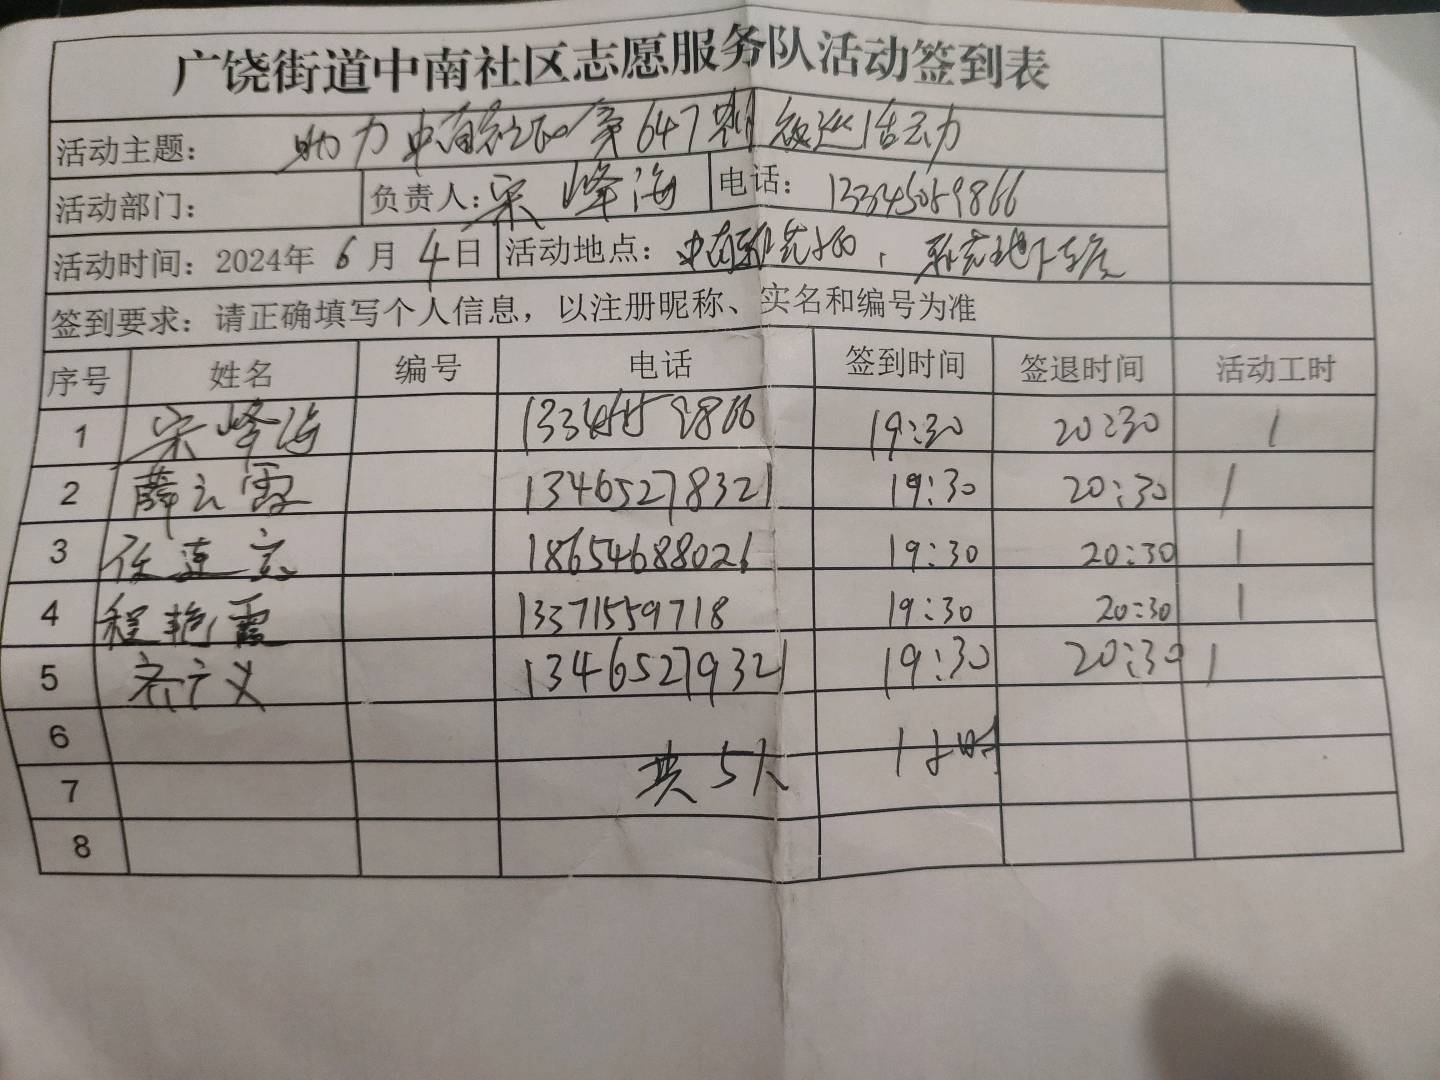 广饶街道中南社区志愿服务队活动签到表
活动主题: 助力中南社区第647期夜巡活动
活动部门: 负责人: 宋峰海 电话: 13345059866
活动时间: 2024年 6 月 4 日 活动地点: 中南
签到要求: 请正确填写个人信息, 以注册昵称、实名和编号为准
序号 姓名 编号 电话 签到时间 签退时间 活动工时
1 宋峰海 19:30 20:30 1
2 薛云霞 13465278321 19:30 20:30 1
3 任连 18654688026 19:30 20:30 1
4 程艳霞 13371559718 19:30 20:30 1
5 义 13465279321 19:30 20:30 1
6
共5人 1小时
7
8